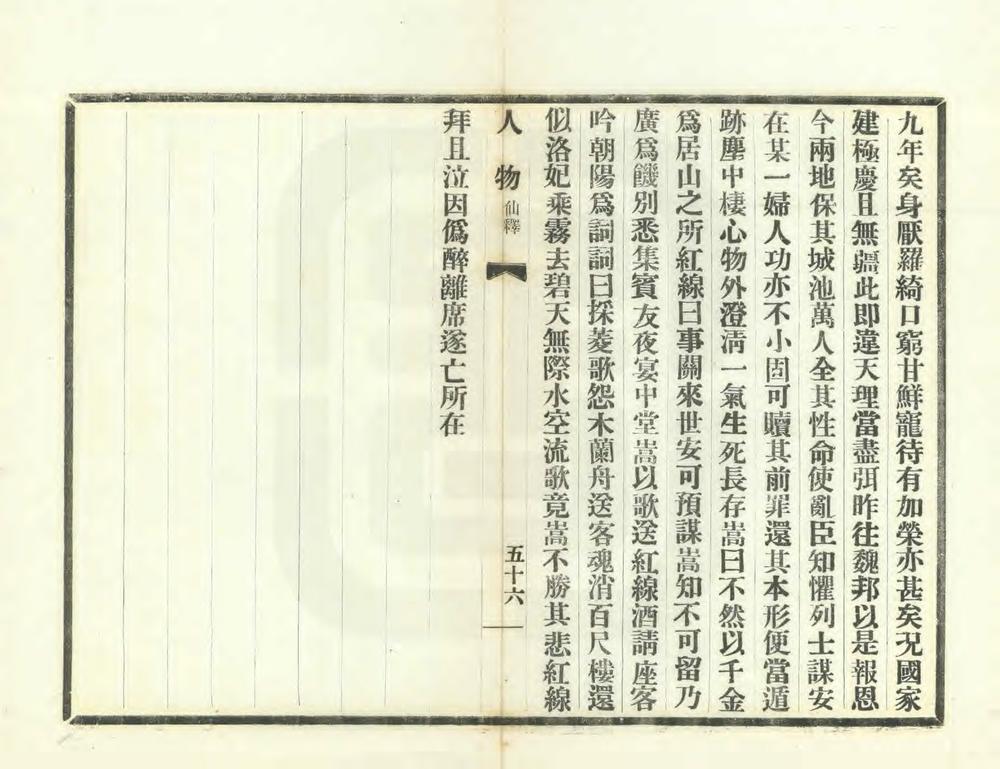 九年矣身厭羅綺口窮甘鮮寵待有加榮亦甚矣况國家
建極慶且無疆此即違天理當盡弭昨往魏邦以是報恩
今兩地保其城池萬人全其性命使亂臣知懼列士謀安
在某一婦人功亦不小固可贖其前罪還其本形便當遁
跡塵中棲心物外澄淸一氣生死長存嵩曰不然以千金
爲居山之所紅線曰事關來世安可預謀嵩知不可留乃
廣爲餞別悉集賓友夜宴中堂嵩以歌送紅線酒請座客
吟朝陽爲詞詞曰採菱歌怨木蘭舟送客魂消百尺樓還
似洛妃乘霧去碧天無際水空流歌竟嵩不勝其悲紅線
人物 仙釋 五十六
拜且泣因僞醉離席遂亡所在